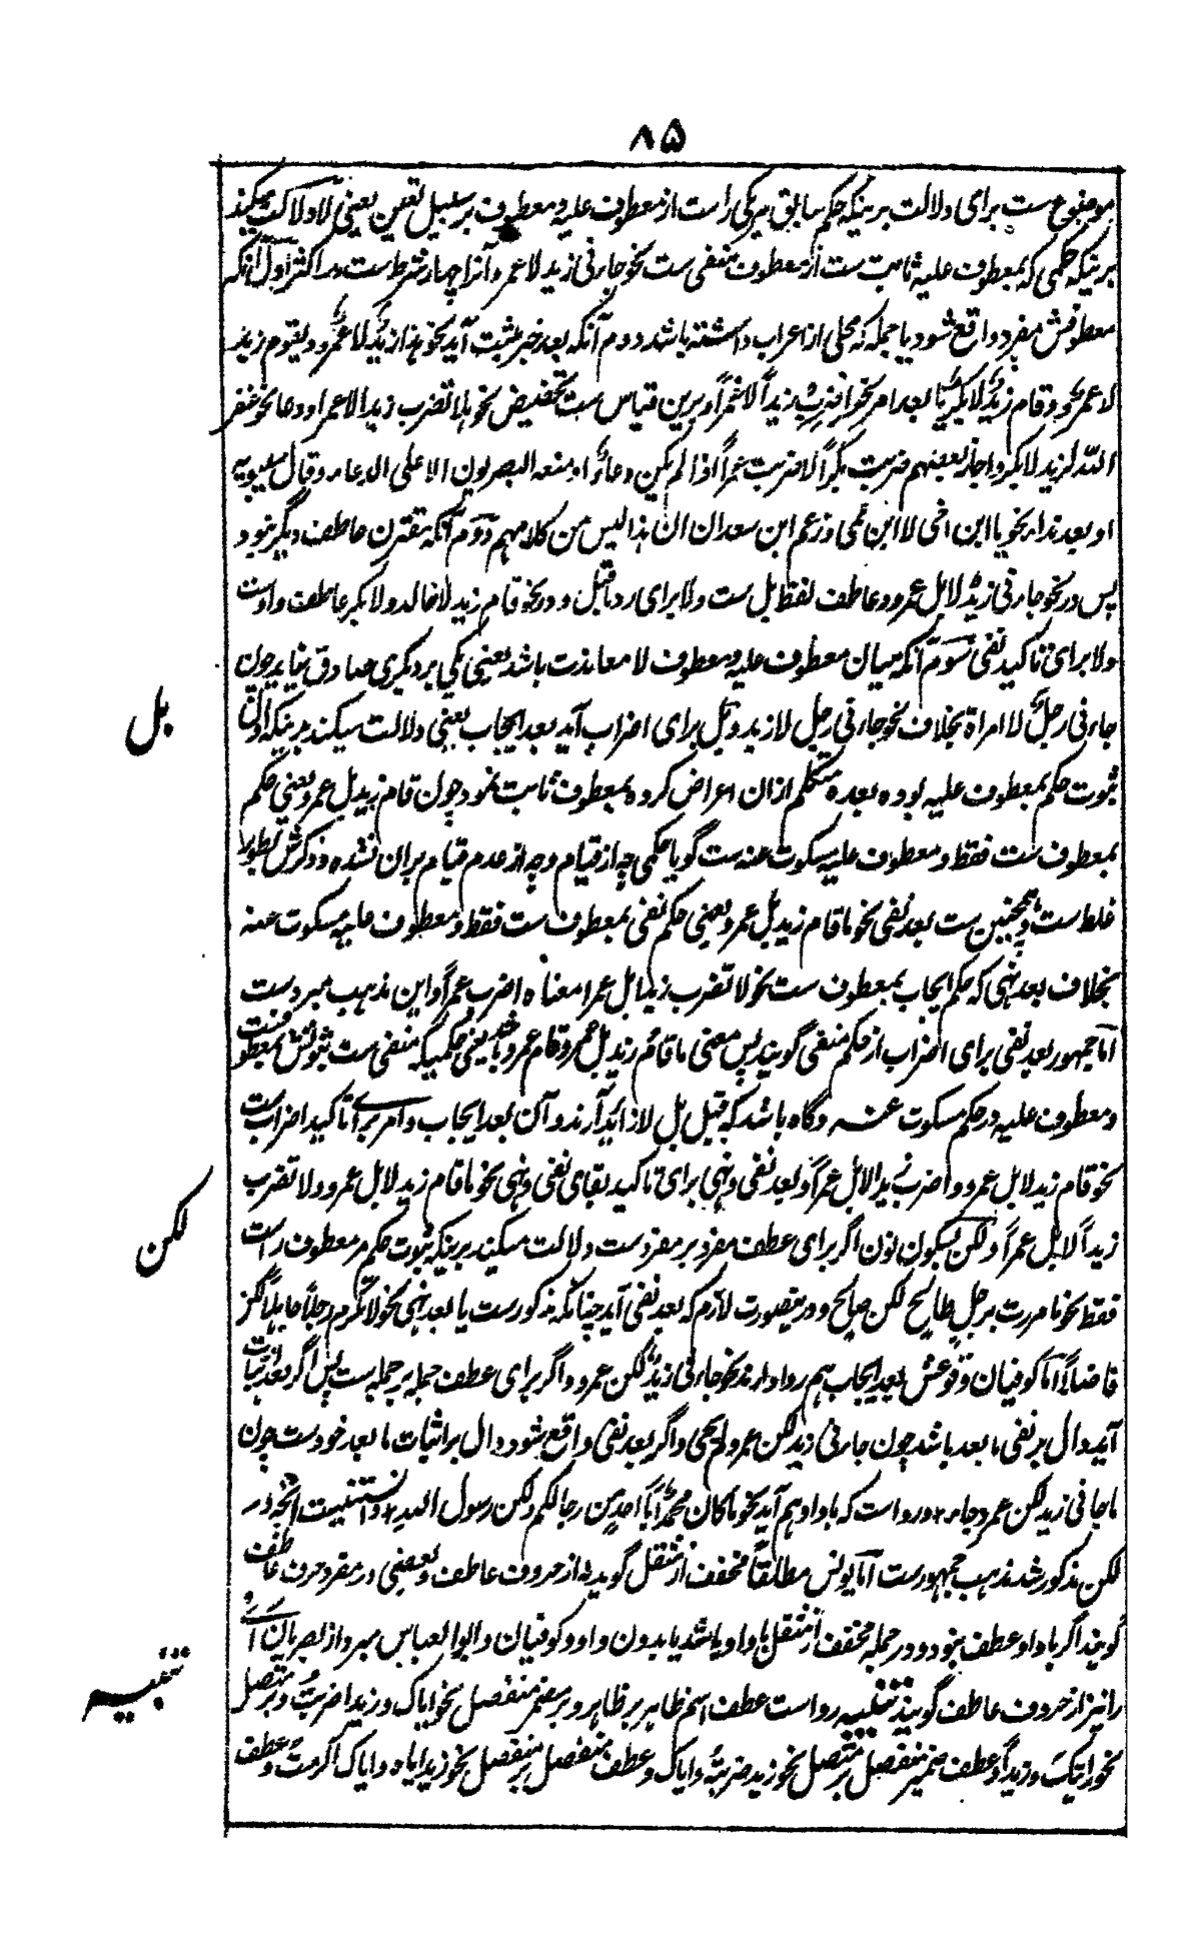 ۸۵
موضوع ست برای دلالت برینکه حکم سابق هریکی راست از معطوف علیه و معطوف بر سبیل تعین یعنی لا دلالت میکند
برینکه حکمی که بمعطوف علیه ثابت ست از معطوف منتفی ست نحو جاءنی زید لا عمرو و آنرا چهار شرط ست در اکثر اول آنکه
معطوفش مفرد واقع شود یا جمله که محلی از اعراب داشته باشد دوم آنکه بعد خبر مثبت آید نحو هذا زیدٌ لا عمرٌو و یقوم زید
لا عمرو و قام زیدٌ لا بکرٌ یا بعد امر نحو اضرب زیداً لا عمراً و برین قیاس ست تحضیض نحو هلا تضرب زیدا لا عمرا و دعا نحو غفر
اللّه لزید لا بکر و اجاز بعضهم ضربت بکراً لا ضربت عمراً اذا لم یکن دعاءً او منعه البصریون الا علی الدعاء و قال سیبویه
او بعد ندا نحو یا ابن اخی لا ابن عمی و زعم ابن سعدان ان هذا لیس من کلامهم دوم آنکه مقترن عاطف دیگر نبود
پس در نحو جاءنی زیدٌ لا بل عمرو عاطف لفظ بل ست و لا برای رد ماقبل و در نحو قام زید لا خالد ولا بکر عاطف واو ست
و لا برای تاکید نفی سوم آنکه میان معطوف علیه و معطوف لا معاندت باشد یعنی یکی بر دیگری صادق نیاید چون
جاءنی رجلٌ لا امرأة بخلاف نحو جاءنی رجل لا زید و بل برای اضراب آید بعد ایجاب یعنی دلالت میکند برینکه اولاً
بل
ثبوت حکم بمعطوف علیه بوده بعده متکلم ازان اعراض کرده بمعطوف ثابت نمود چون قام زید بل عمرو یعنی حکم
بمعطوف ست فقط و معطوف علیه مسکوت عنه ست گویا حکمی چه از قیام و چه از عدم قیام بران نشده و ذکرش بطور
غلط ست و همچنین ست بعد نفی نحو ما قام زید بل عمرو یعنی حکم نفی بمعطوف ست فقط و معطوف علیه مسکوت عنه
بخلاف بعد نهی که حکم ایجاب بمعطوف ست نحو لا تضرب زیدا بل عمرا معناه اضرب عمراً و این مذهب مبرد ست
اما جمهور بعد نفی برای اضراب از حکم منفی گویند پس معنی ما قام زید بل عمرو قام عمرو باشد یعنی حکمیکه منفی ست ثبوتش بمعطوفست
و معطوف علیه در حکم مسکوت عنه و گاه باشد که قبل بل لا زائد آرند و آن بعد ایجاب و امر برای تاکید اضراب ست
نحو قام زید لا بل عمرو و اضرب زیدا لا بل عمراً و بعد نفی و نهی برای تاکید بقای نفی و نهی نحو ما قام زید لا بل عمرو و لا تضرب
زیداً لا بل عمراً و لکن بسکون نون اگر برای عطف مفرد بر مفرد ست دلالت میکند برینکه ثبوت حکم مر معطوف راست
لکن
فقط نحو ما مررت برجل طالح لکن صالح و درینصورت لازم که بعد نفی آید چنانکه مذکور ست یا بعد نهی نحو لا تکرم رجلاً جاهلاً لکن
فاضلاً اما کوفیان وقوعش بعد ایجاب هم روا دارند نحو جاءنی زیدٌ لکن عمرو و اگر برای عطف جمله بر جمله ست پس اگر بعد اثبات
آید دال بر نفی ما بعد باشد چون جاءنی زید لکن عمرو لم یجئ و اگر بعد نفی واقع شود دال بر اثبات ما بعد خود ست چون
ما جاءنی زید لکن عمرو جاء و روا ست که با واو هم آید نحو ما کان محمدٌ ابا احد من رجالکم ولکن رسول اللّه و آنچه در
لکن مذکور شد مذهب جمهور ست اما یونس مطلقاً مخفف از مثقل گوید نه از حروف عاطف و بعضی در مفرد حرف عاطف
گویند اگر با واو عطف نبود و در جمله مخفف از مثقل با واو باشد یا بدون واو و کوفیان و ابو العباس مبرد از بصریان أی
را نیز از حروف عاطف گویند تنبیه روا ست عطف اسم ظاهر بر ظاهر و بر مضمر منفصل نحو ایاک و زیدا ضربتُ و بر متصل
تنبیه
نحو رأیتک و زیداً و عطف ضمیر منفصل بر متصل نحو زید ضربتهٗ و ایاک و عطف منفصل بر منفصل نحو زید ایاه و ایاک اکرمت و عطف